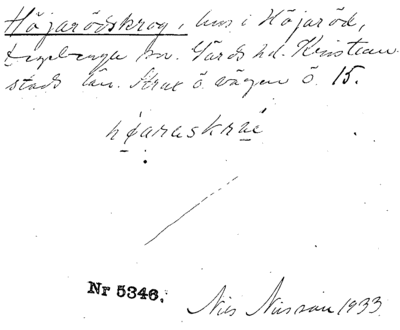 Höjarödskrog, hus i Höjaröd,
Degeberga sn. Gärds hd. Kristian-
stads län. Strax ö. vägen ö. 15.
Nr 5346.
Nils Nilsson 1933